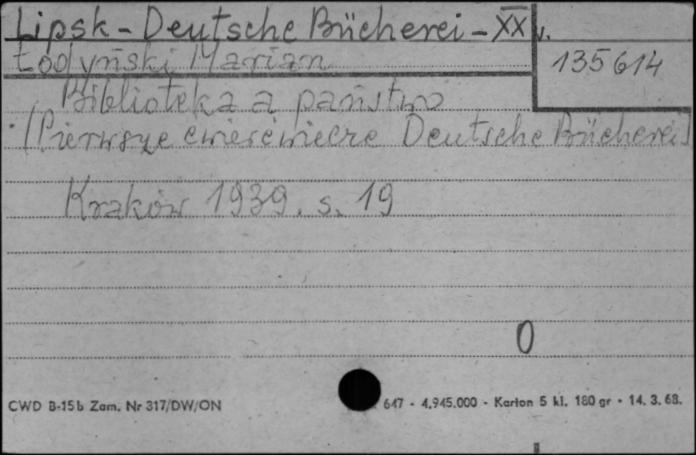 Lipsk - Deutsche Bücherei - XX w.
135614
Łodyński Marian
Biblioteka a państwo
(Pierwsze ćwierćwiecze Deutsche Bücherei)
Kraków 1939. s. 19
0
CWD B-15b Zam. Nr 317/DW/ON
647 - 4.945.000 - Karton 5 kl. 180 gr - 14. 3. 68.